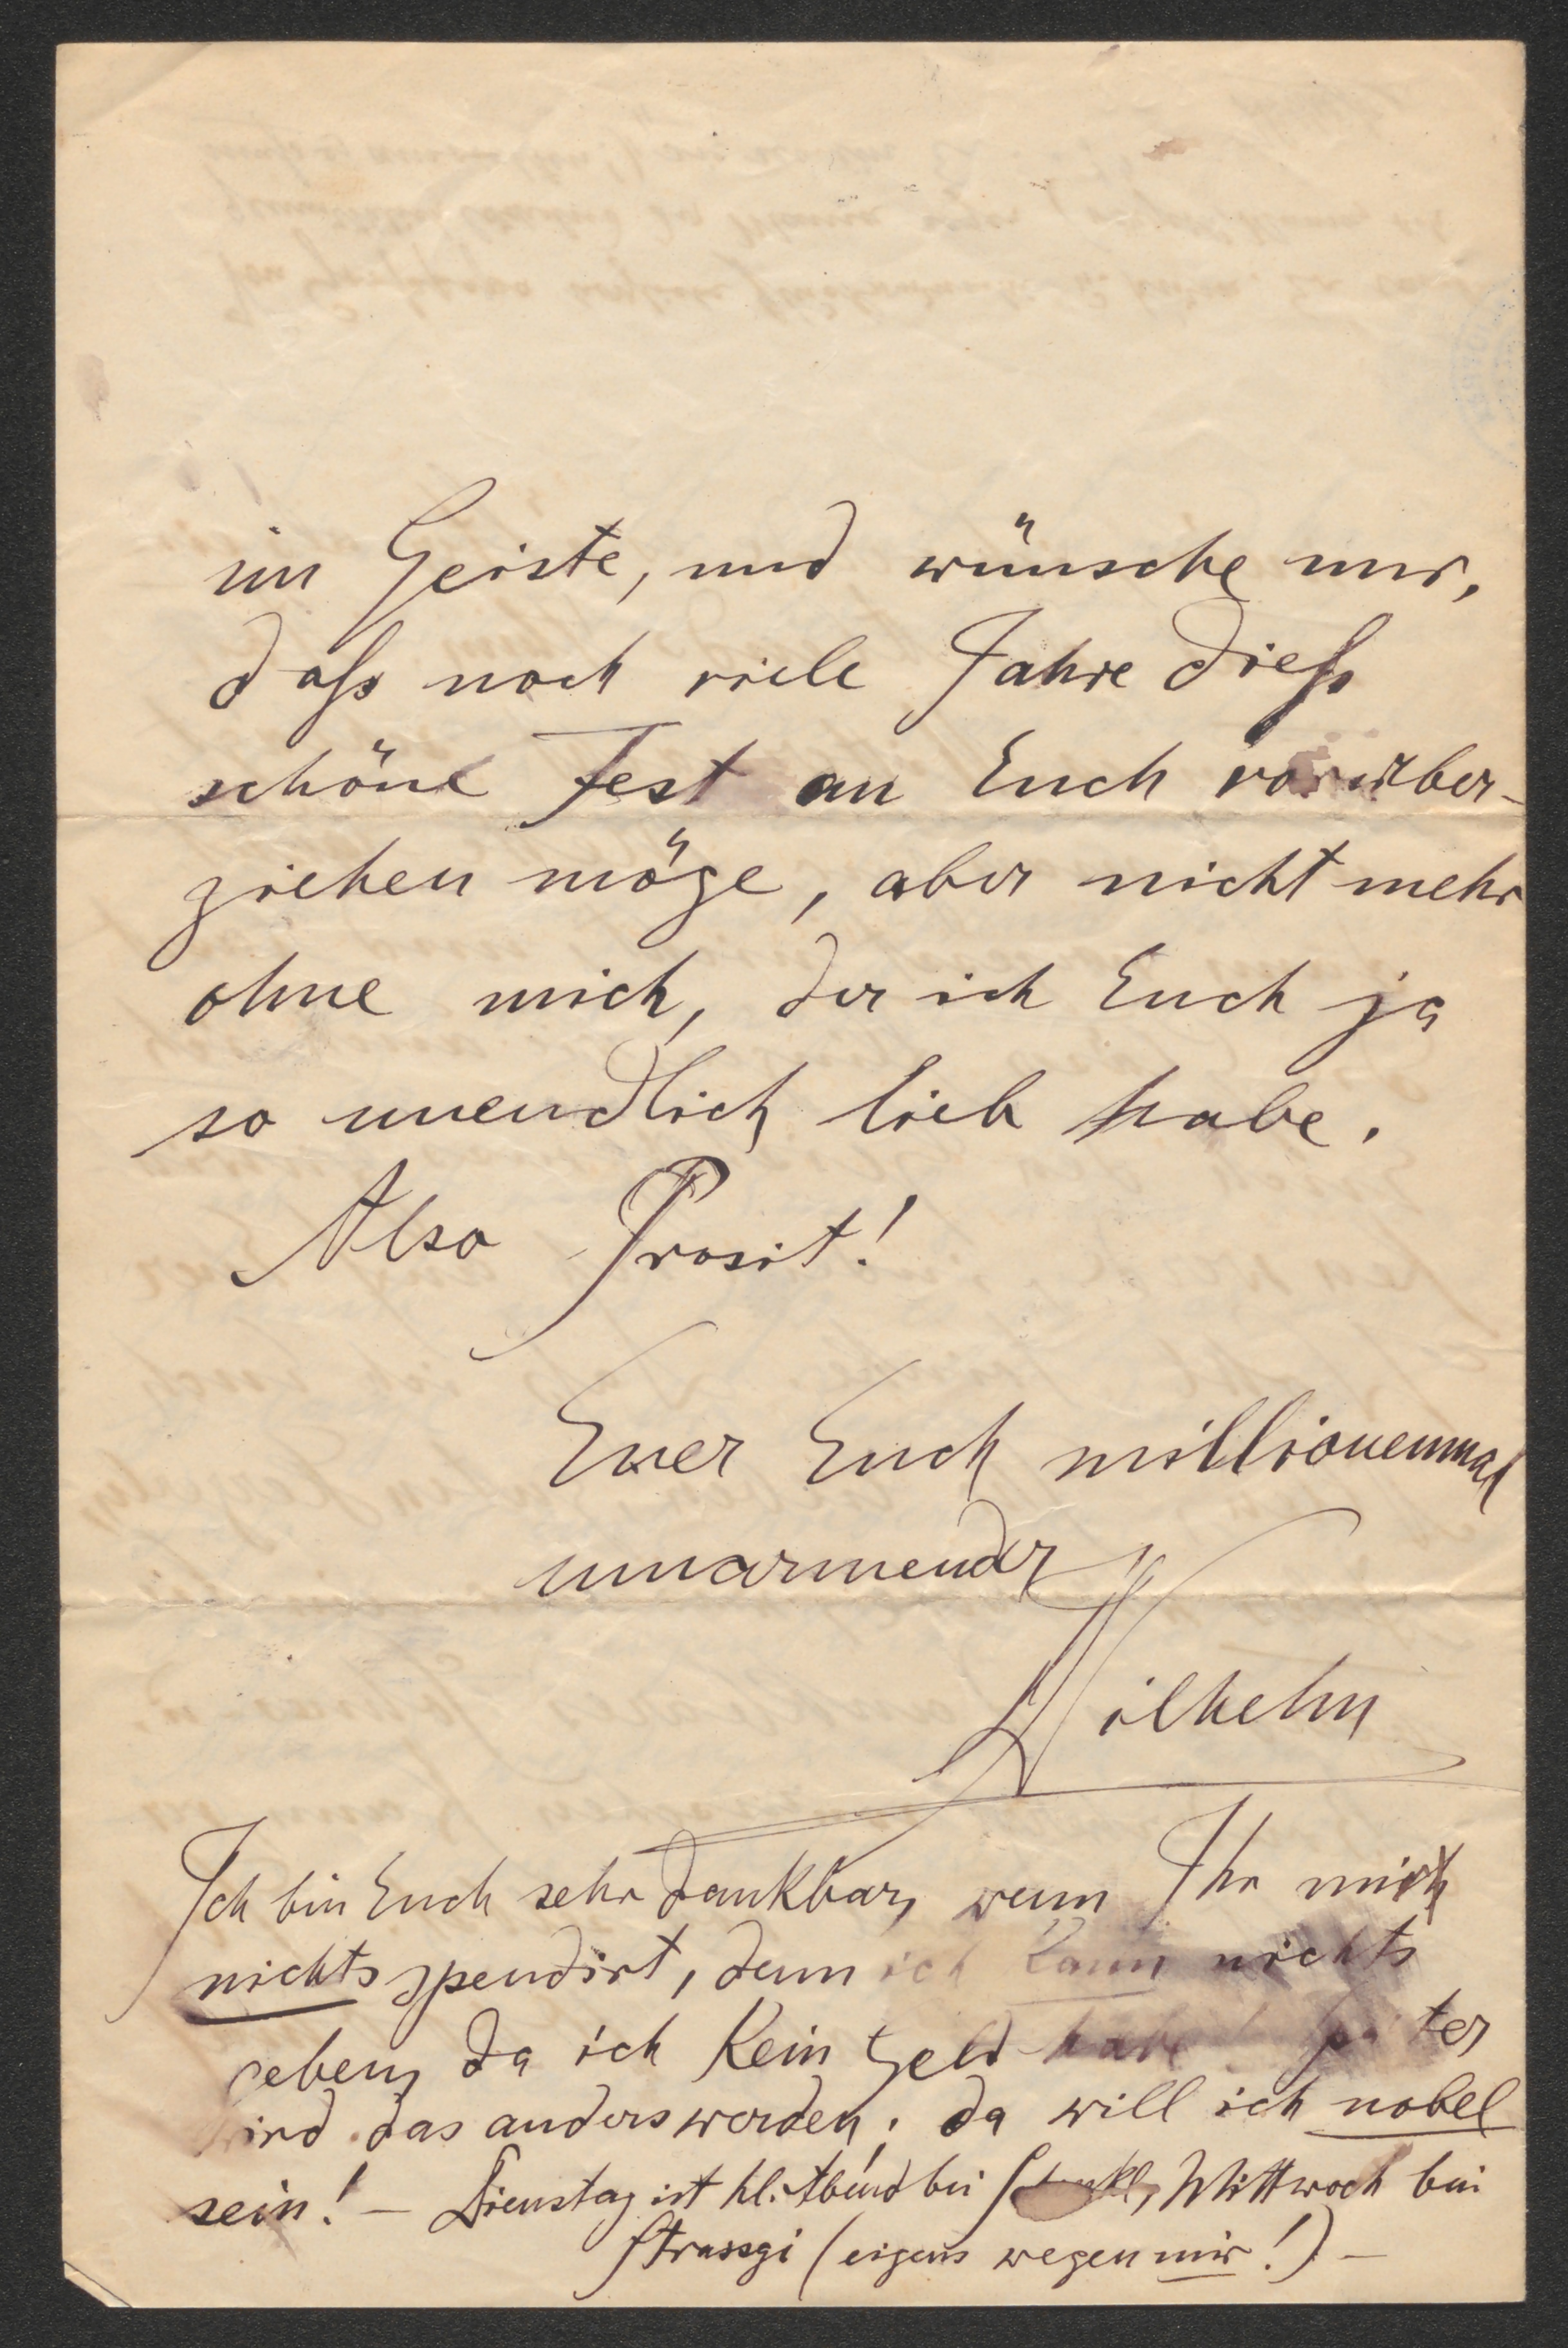 im Geiste, und wünsche nur,
daß noch viele Jahre dieß
schöne Fest an Euch vorüber-
ziehen möge, aber nicht mehr
ohne mich, der ich Euch ja
so unendlich lieb habe.
Also Prosit!
Euer Euch millionenmal
umarmender
Wilhelm
Ich bin Euch sehr dankbar, wenn Ihr mir
nichts spendirt, denn ich kann nichts
geben, da ich kein Geld habe. Später
wird das anders werden, da will ich nobel
sein! – Dienstag ist hl. Abend bei Mittwoch bei
Strassgi (eigens wegen mir!) –